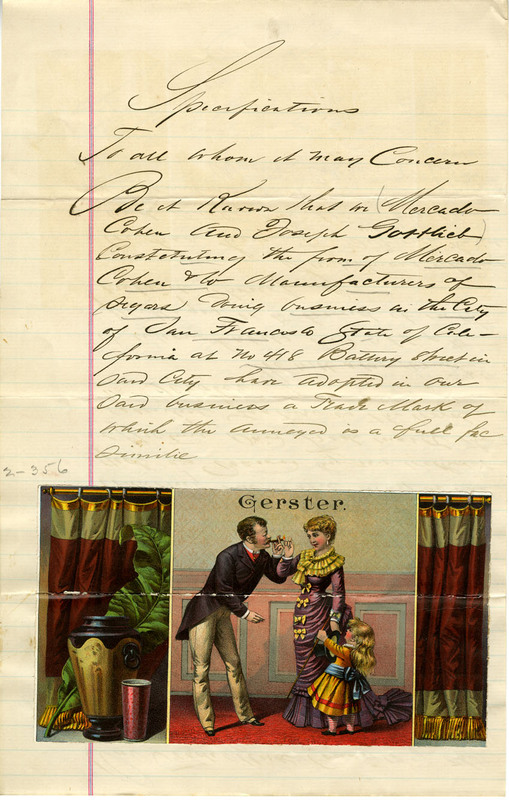 Specifications
To all whom it may Concern
Be it Known that we (Mercado
Cohen and Joseph Gottlieb)
Constituting the firm of Mercado
Cohen & Co Manufacturers of
segars doing business in the City
of San Francisco State of Cali-
fornia at No 418 Battery Street in
said City have adopted in our
said business a Trade Mark of
which the annexed is a full fac
similie
2-356
Gerster.